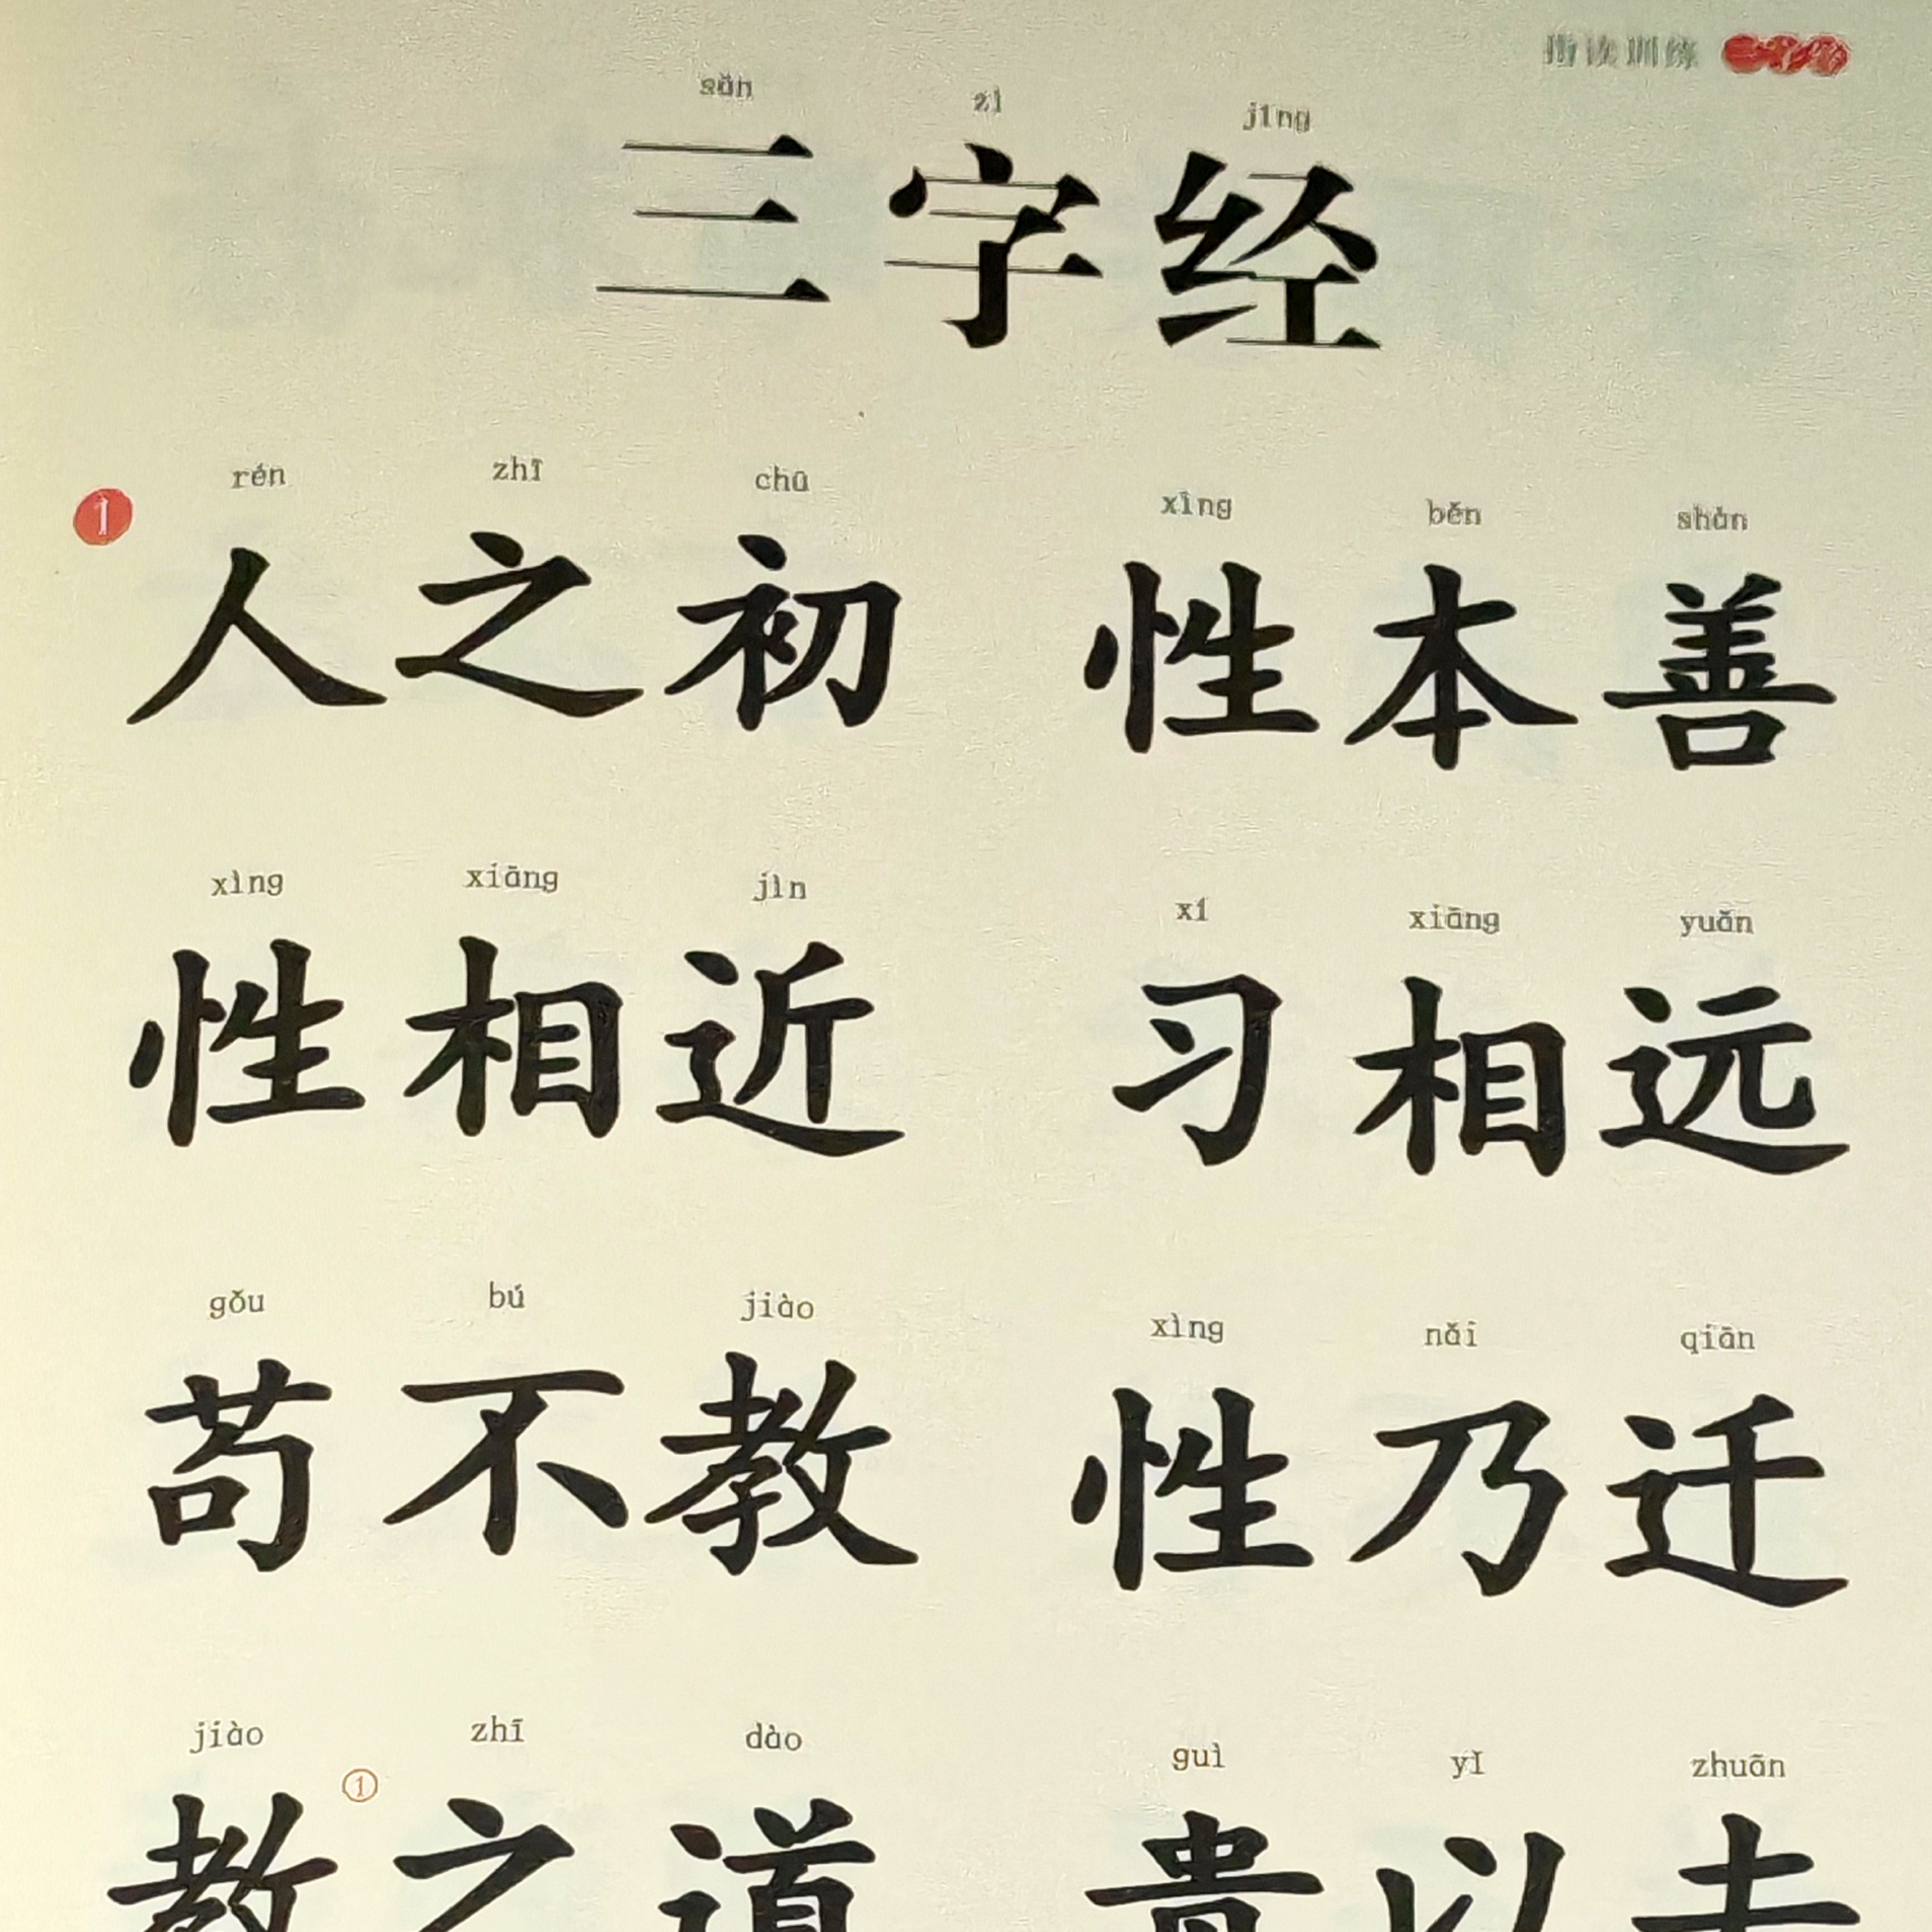 指读训练 三字经
sān zì jīng
三字经
rén zhī chū xìng běn shàn
① 人之初 性本善
xìng xiāng jìn xí xiāng yuǎn
性相近 习相远
gǒu bú jiào xìng nǎi qiān
苟不教 性乃迁
jiào zhī dào guì yǐ zhuān
教①之道 贵以专